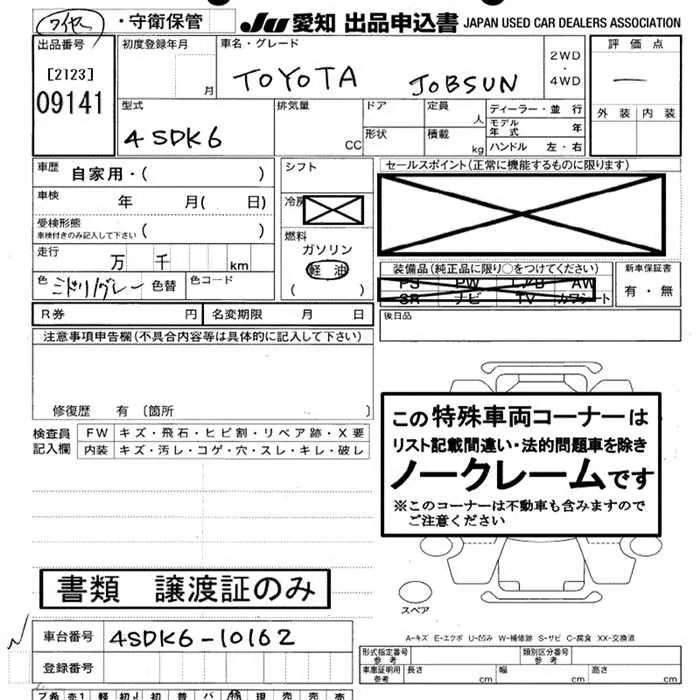 ワイヤ ・守衛保管 JU 愛知 出品申込書 JAPAN USED CAR DEALERS ASSOCIATION
出品番号 初度登録年月 車名・グレード 評価点
[2123] 月 TOYOTA JOBSUN 2WD・4WD —
09141 型式 排気量 ドア 定員 ディーラー・並行 外装 内装
人 モデル年式 年
4SDK6 CC 形状 積載 kg ハンドル 左・右
車歴 自家用・( ) シフト セールスポイント(正常に機能するものに限ります)
車検 年 月( 日) 冷房
受検形態 ( )
車検付きのみ記入して下さい
燃料
走行 万 千 km ガソリン
軽油
装備品(純正品に限り○をつけてください) 新車保証書
色 ミドリ/グレー 色替 色コード ( ) PS PW AW 有・無
SR ナビ TV カワシート
R券 円 名変期限 月 日 後日品
注意事項申告欄(不具合内容等は具体的に記入して下さい)
修復歴 有 (箇所 )
検査員記入欄 FW キズ・飛石・ヒビ割・リペア跡・X要
内装 キズ・汚レ・コゲ・穴・スレ・キレ・破レ
この特殊車両コーナーは
リスト記載間違い・法的問題車を除き
ノークレームです
※このコーナーは不動車も含みますので
ご注意ください
書類 譲渡証のみ
スペア
車台番号 4SDK6-10162
A-キズ E-エクボ U-凹み W-補修跡 S-サビ C-腐食 XX-交換済
登録番号
形式指定番号 参考 類別区分番号 参考
車庫証明用 参考 長さ cm 幅 cm 高さ cm